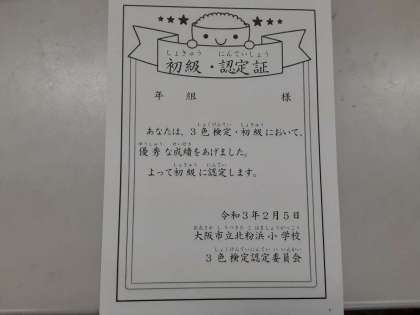 しょきゅう にんていしょう
初級・認定証
年 組 様
しょくけんてい しょきゅう
あなたは、3色検定・初級において、
ゆうしゅう せいせき
優秀な成績をあげました。
しょきゅう にんてい
よって初級に認定します。
令和3年2月5日
おおさか し りつきた こ はましょうがっこう
大阪市立北粉浜小学校
しょくけんていにんてい い いんかい
3色検定認定委員会